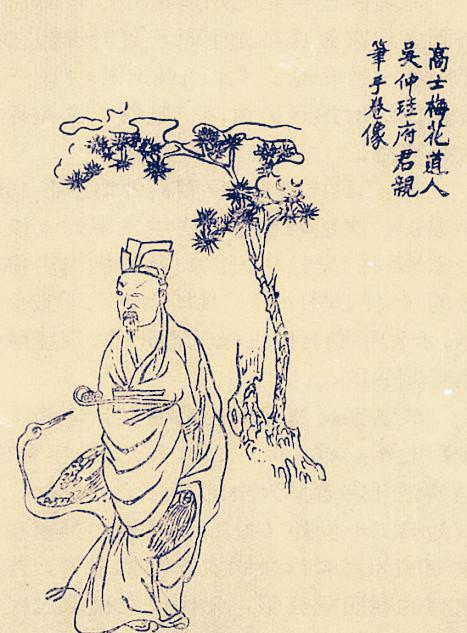 高士梅花道人
吳仲珪府君親
筆手卷像